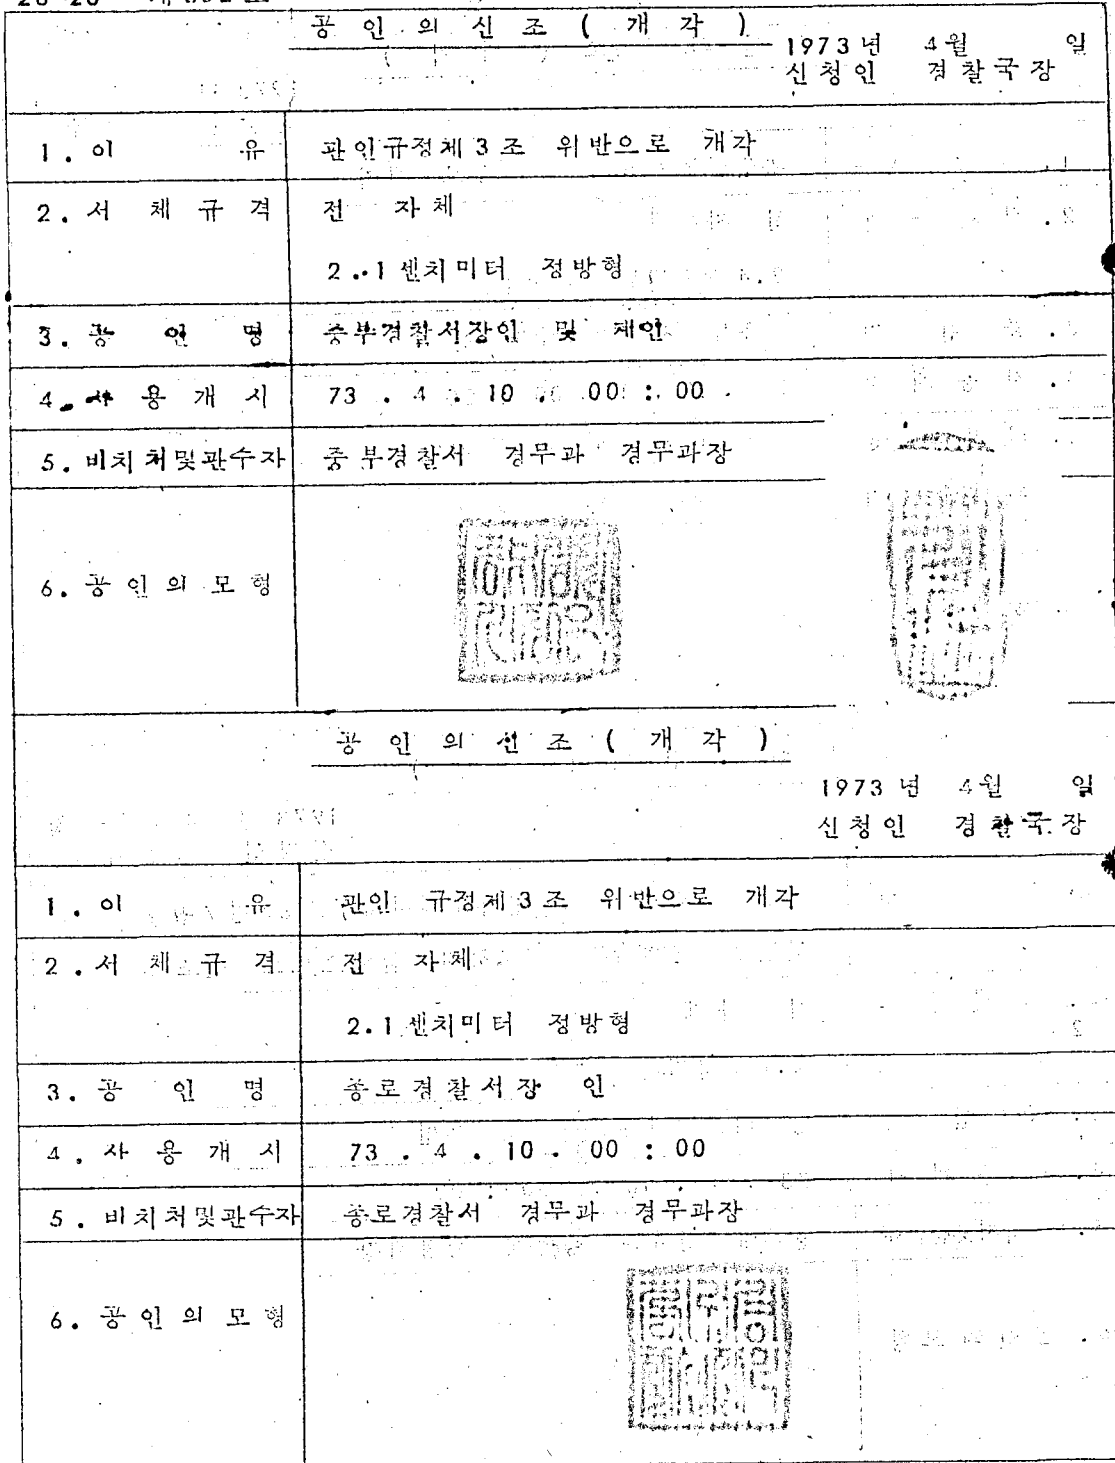 공 인 의 신 조 ( 개 각 )
1973년 4월 일
신청인 경찰국장
1. 이 유 관인규정제3조 위반으로 개각
2. 서 체 규 격 전 자체
2.1센치미터 정방형
3. 공 인 명 중부경찰서장인 및 계인
4. 사 용 개 시 73 . 4 . 10 . 00 : 00 .
5. 비치처및관수자 중부경찰서 경무과 경무과장
6. 공 인 의 모 형
공 인 의 신 조 ( 개 각 )
1973년 4월 일
신청인 경찰국장
1. 이 유 관인 규정제3조 위반으로 개각
2. 서 체 규 격 전 자체
2.1센치미터 정방형
3. 공 인 명 종로경찰서장 인
4. 사 용 개 시 73 . 4 . 10 . 00 : 00
5. 비치처및관수자 종로경찰서 경무과 경무과장
6. 공 인 의 모 형